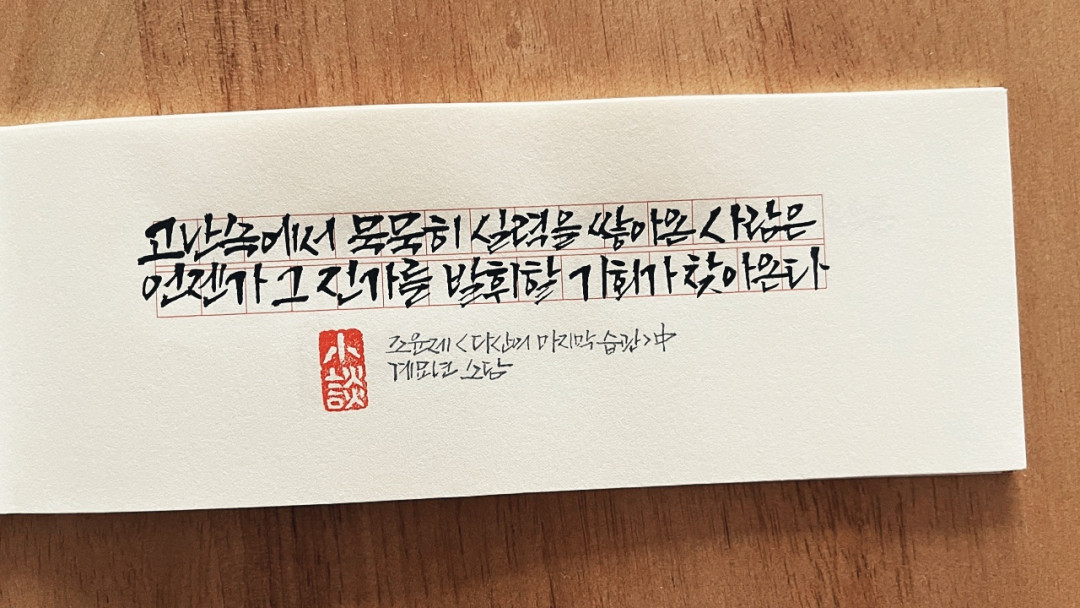 고난속에서 묵묵히 실력을 쌓아온 사람은
언젠가 그 진가를 발휘할 기회가 찾아온다
조윤제 <다산의 마지막 습관> 中
계묘년 소담
小談